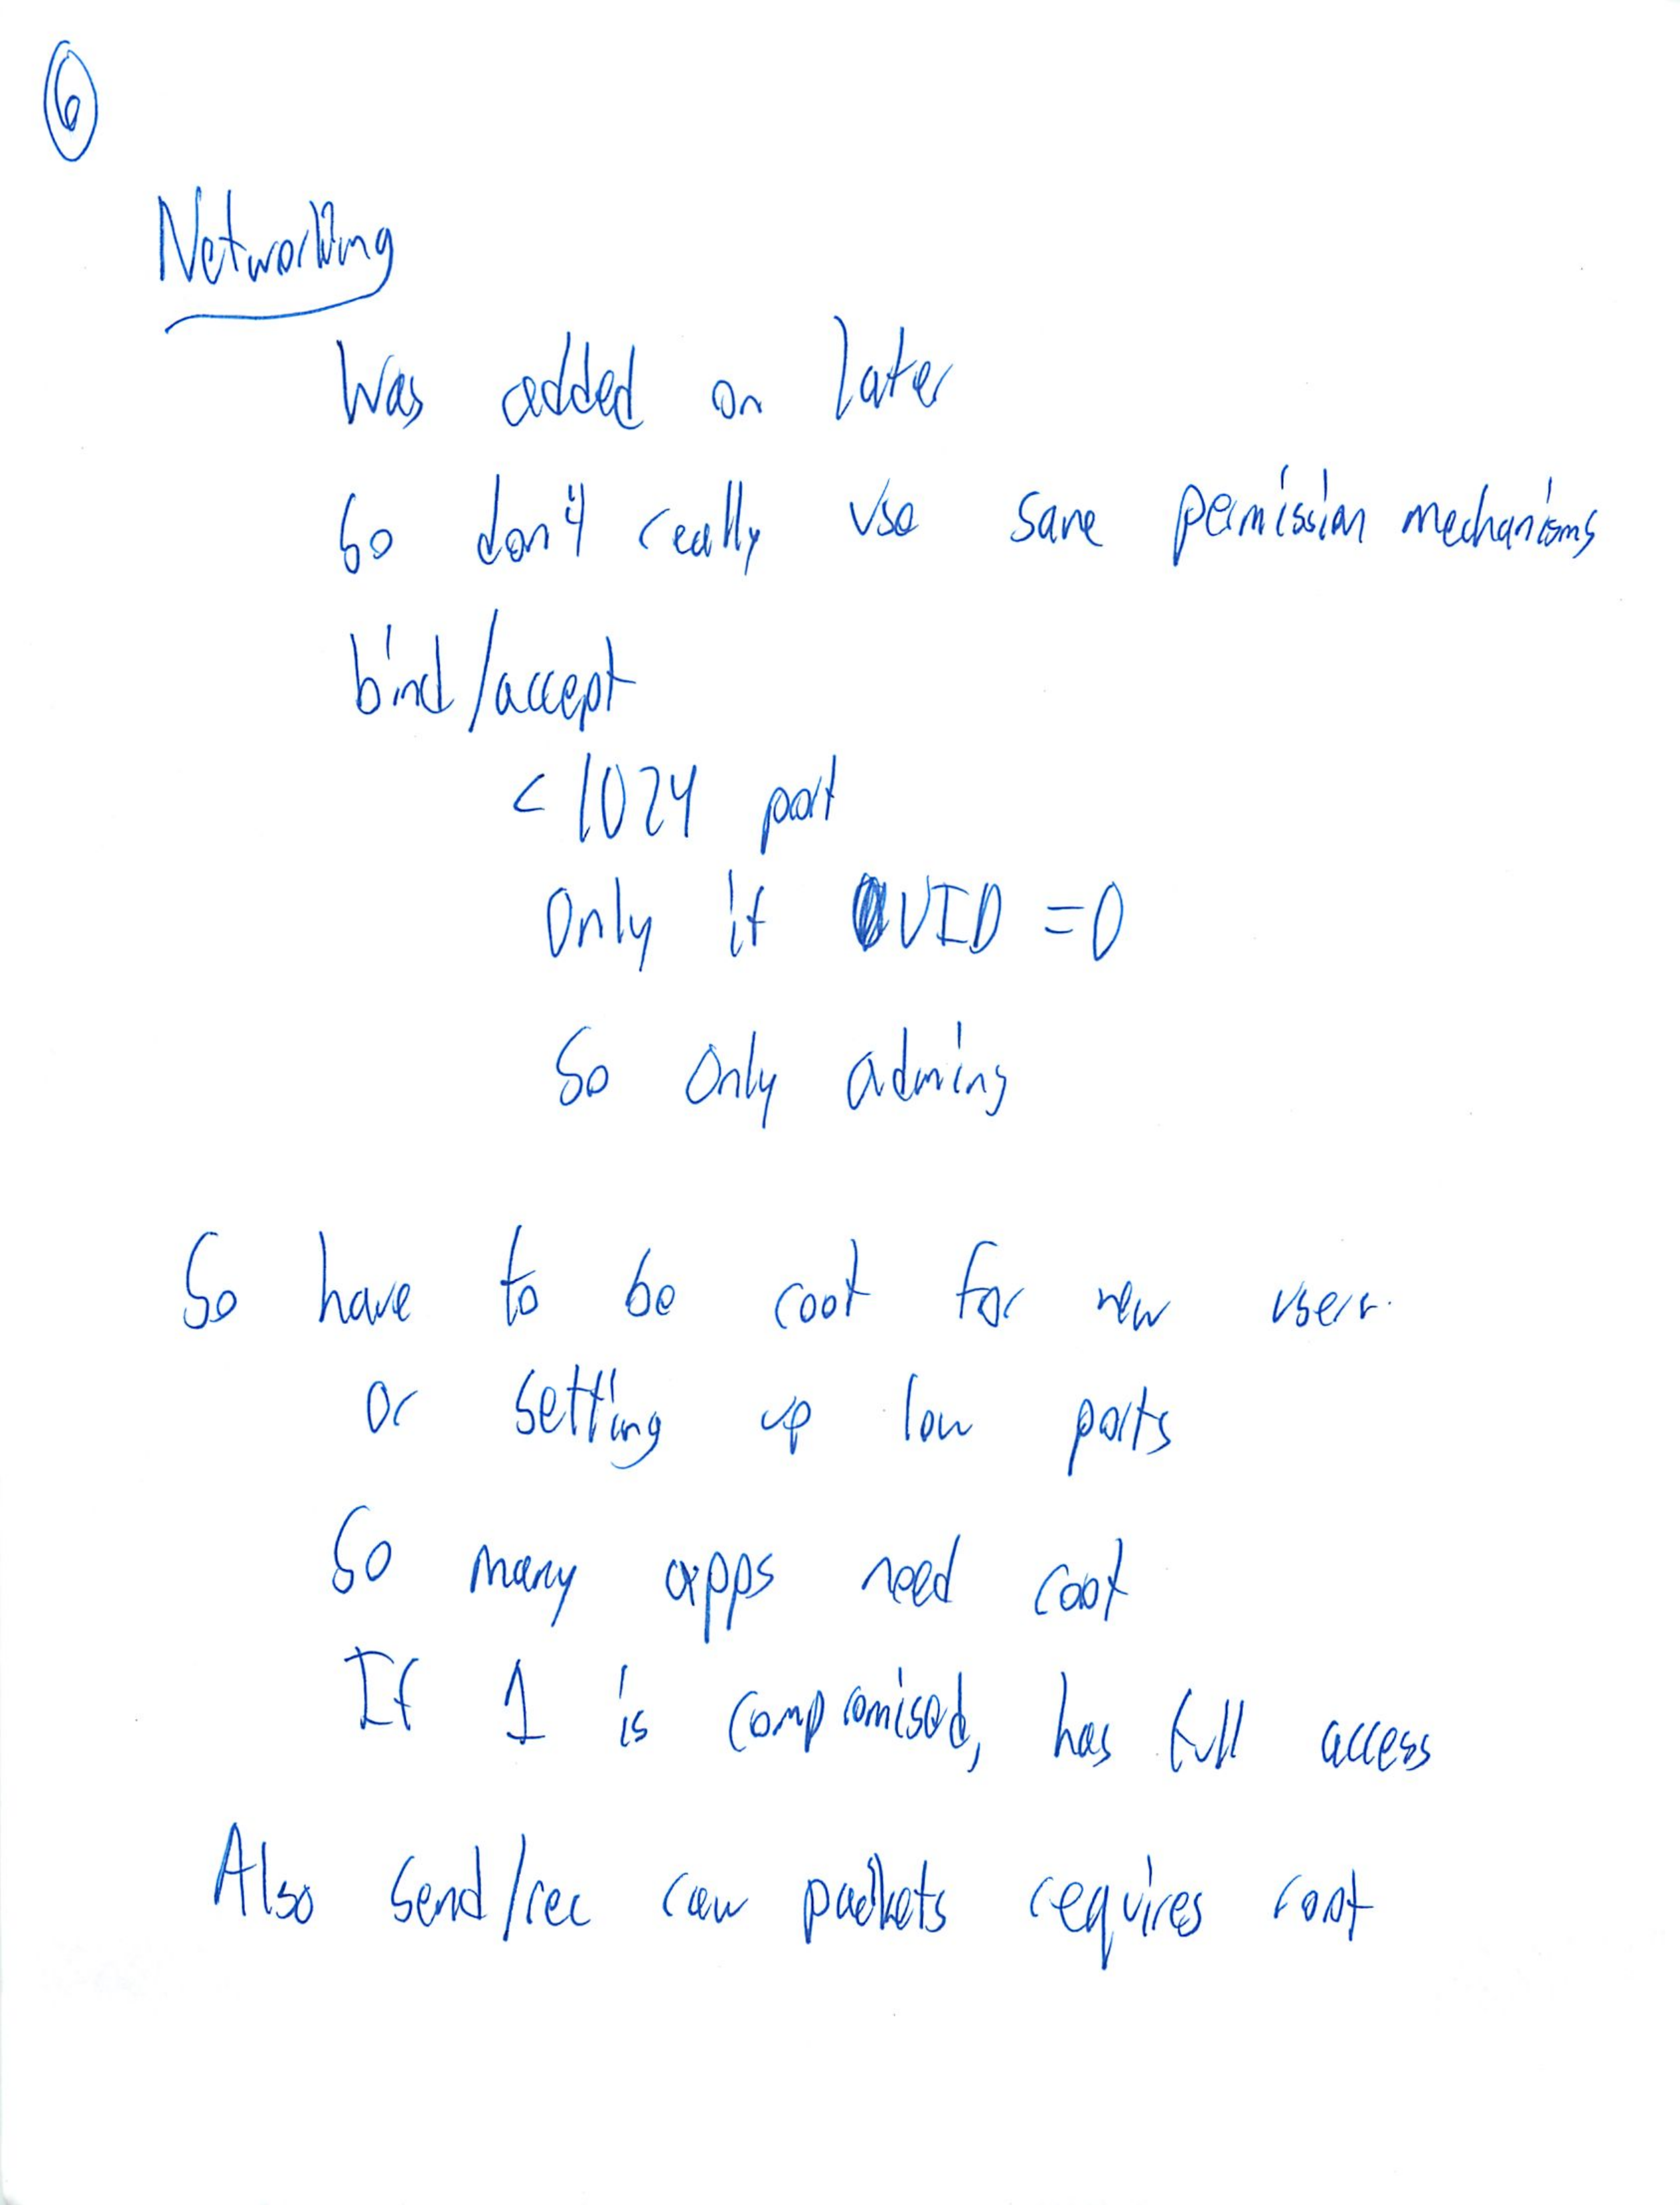 6
Networking
Was added on later
So don't really use same permission mechanisms
bind/accept
< 1024 port
Only if UID = 0
So only admins
So have to be root for new user
or setting up low ports
So many apps need root
If 1 is compromised, has full access
Also send/rec raw packets requires root